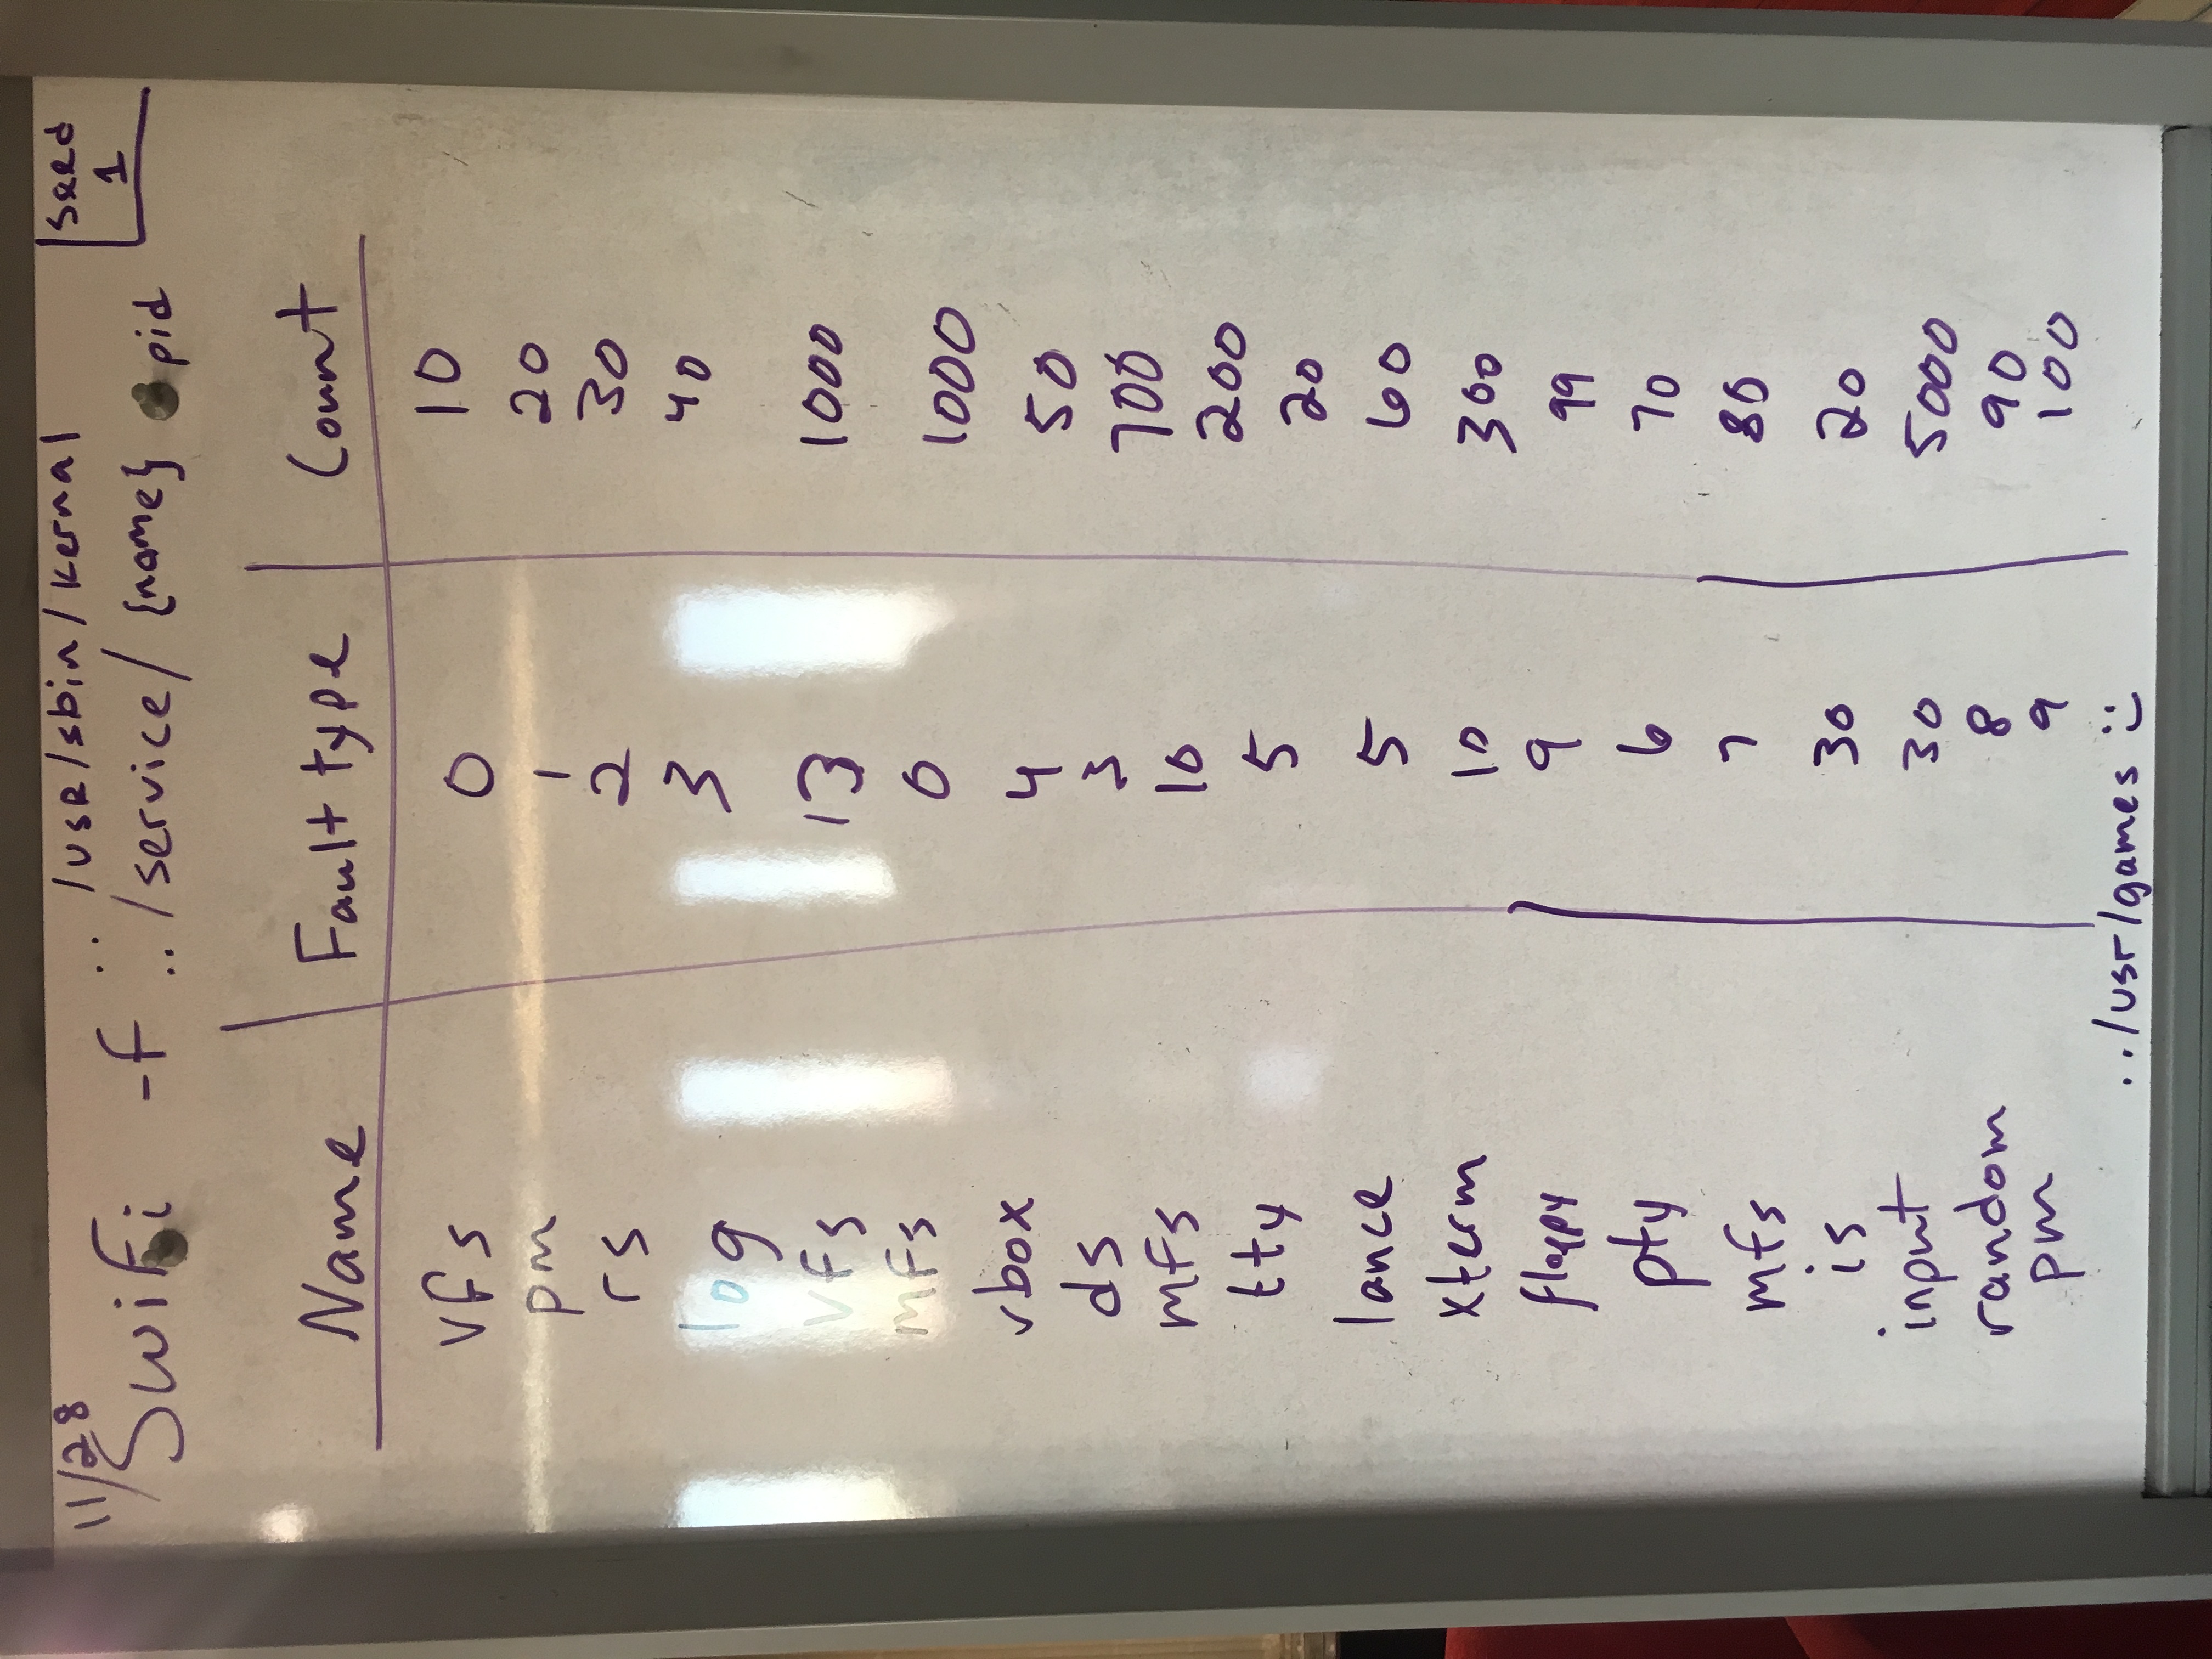 11/28
../usr/sbin/kernal
Seed
1
Swifi -f ../service/{name} pid
Name Fault type Count
vfs 0 10
pm 1 20
rs 2 30
log 3 40
vfs 13 1000
mfs 0 1000
vbox 4 50
ds 3 700
mfs 10 200
tty 5 20
lance 5 60
xterm 10 300
floppy 9 99
pty 6 70
mfs 7 80
is 30 20
input 30 5000
random 8 90
pm 9 100
../usr/games :)